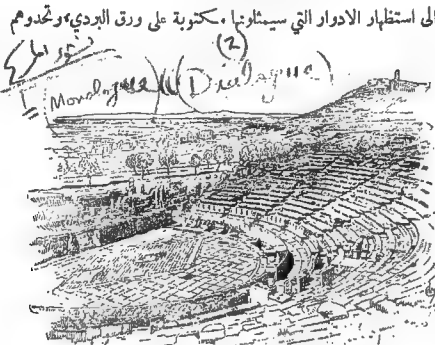 لى استظهار الادوار التي سيمثلونها مكتوبة على ورق البردي، وتحدوهم
(2)
I (Monologue) \\ (Dialogue)